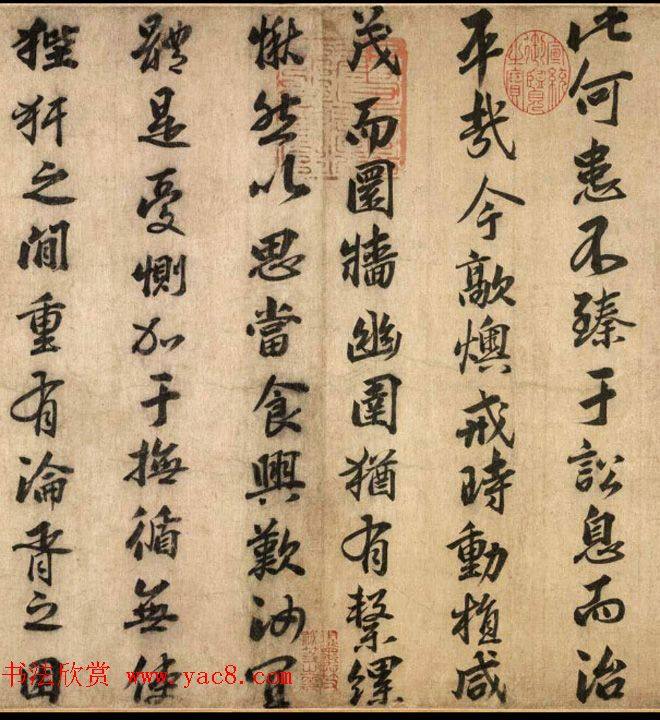 此何患不臻于訟息而治
平哉今歊燠戒時動植咸
茂而圜牆幽圄猶有繫縲
愀然以思當食興歎汝宜
體是憂惻加于撫循無使
狴犴之間重有淪胥之困
宣統御覽之寶
书法欣赏 www.yac8.com